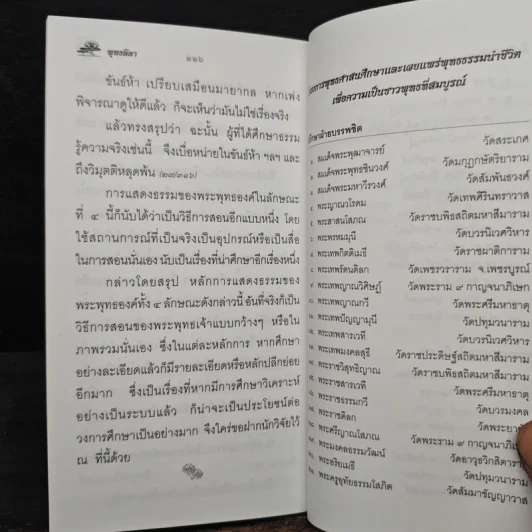 พุทธลีลา
๑๑๖
ขันธ์ห้า เปรียบเสมือนมายากล หากเพ่ง
พิจารณาดูให้ดีแล้ว ก็จะเห็นว่ามันไม่ใช่เรื่องจริง
แล้วทรงสรุปว่า ฉะนั้น ผู้ที่ได้ศึกษาธรรม
รู้ความจริงเช่นนี้ จึงเบื่อหน่ายในขันธ์ห้า ฯลฯ และ
ถึงวิมุตติหลุดพ้น
การแสดงธรรมของพระพุทธองค์ในลักษณะ
ที่ ๔ นี้ก็นับได้ว่าเป็นวิธีการสอนอีกแบบหนึ่ง โดย
ใช้สถานการณ์ที่เป็นจริงเป็นอุปกรณ์หรือเป็นสื่อ
ในการสอนนั่นเอง นับเป็นเรื่องที่น่าศึกษาอีกเรื่องหนึ่ง
กล่าวโดยสรุป หลักการแสดงธรรมของ
พระพุทธองค์ทั้ง ๔ ลักษณะดังกล่าวนี้ อันที่จริงก็เป็น
วิธีการสอนของพระพุทธเจ้าแบบกว้างๆ หรือใน
ภาพรวมนั่นเอง ซึ่งในแต่ละหลักการ หากศึกษา
อย่างละเอียดแล้วก็มีรายละเอียดหรือหลักปลีกย่อย
อีกมาก ซึ่งเป็นเรื่องที่หากมีการศึกษาวิเคราะห์
อย่างเป็นระบบแล้ว ก็น่าจะเป็นประโยชน์ต่อ
วงการศึกษาเป็นอย่างมาก จึงใคร่ขอฝากนักวิจัยไว้
ณ ที่นี้ด้วย
พุทธศาสนศึกษาและเผยแพร่พุทธธรรมนำชีวิต
เพื่อความเป็นชาวพุทธที่สมบูรณ์
ฝ่ายบรรพชิต
สมเด็จพระพุฒาจารย์ วัดสระเกศ
สมเด็จพระพุทธชินวงศ์ วัดมกุฏกษัตริยาราม
สมเด็จพระมหาวีรวงศ์ วัดสัมพันธวงศ์
พระญาณวโรดม วัดเทพศิรินทราวาส
พระศาสนโสภณ วัดราชบพิธสถิตมหาสีมาราม
พระพรหมมุนี วัดบวรนิเวศวิหาร
พระเทพกิตติเมธี วัดราชผาติการาม
พระเทพรัตนดิลก วัดเพชรวราราม จ.เพชรบูรณ์
พระเทพญาณวิศิษฏ์ วัดพระราม ๙ กาญจนาภิเษก
พระเทพญาณกวี วัดพระศรีมหาธาตุ
พระเทพปัญญามุนี วัดปทุมวนาราม
พระเทพสารเวที วัดบวรนิเวศวิหาร
พระเทพมงคลสุธี วัดราชประดิษฐ์สถิตมหาสีมาราม
พระราชวิสุทธิญาณ วัดราชบพิธสถิตมหาสีมาราม
พระราชสารเวที วัดพระศรีมหาธาตุ
พระราชธรรมกวี วัดบวรมงคล
พระราชดิลก
พระศรีญาณโสภณ วัดพระราม ๙ กาญจนาภิเษก
พระมงคลธรรมวัฒน์ วัดอาวุธวิกสิตาราม
พระอริยเมธี วัดปทุมวนาราม
พระครูอุทัยธรรมโสภิต วัดสัมมาชัญญาวาส